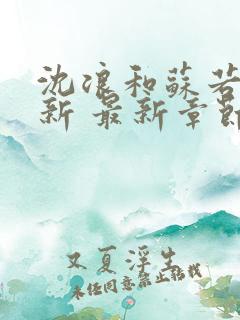 沈浪和蘇若
新 最新章節
又夏浮生
未经同意禁止转载